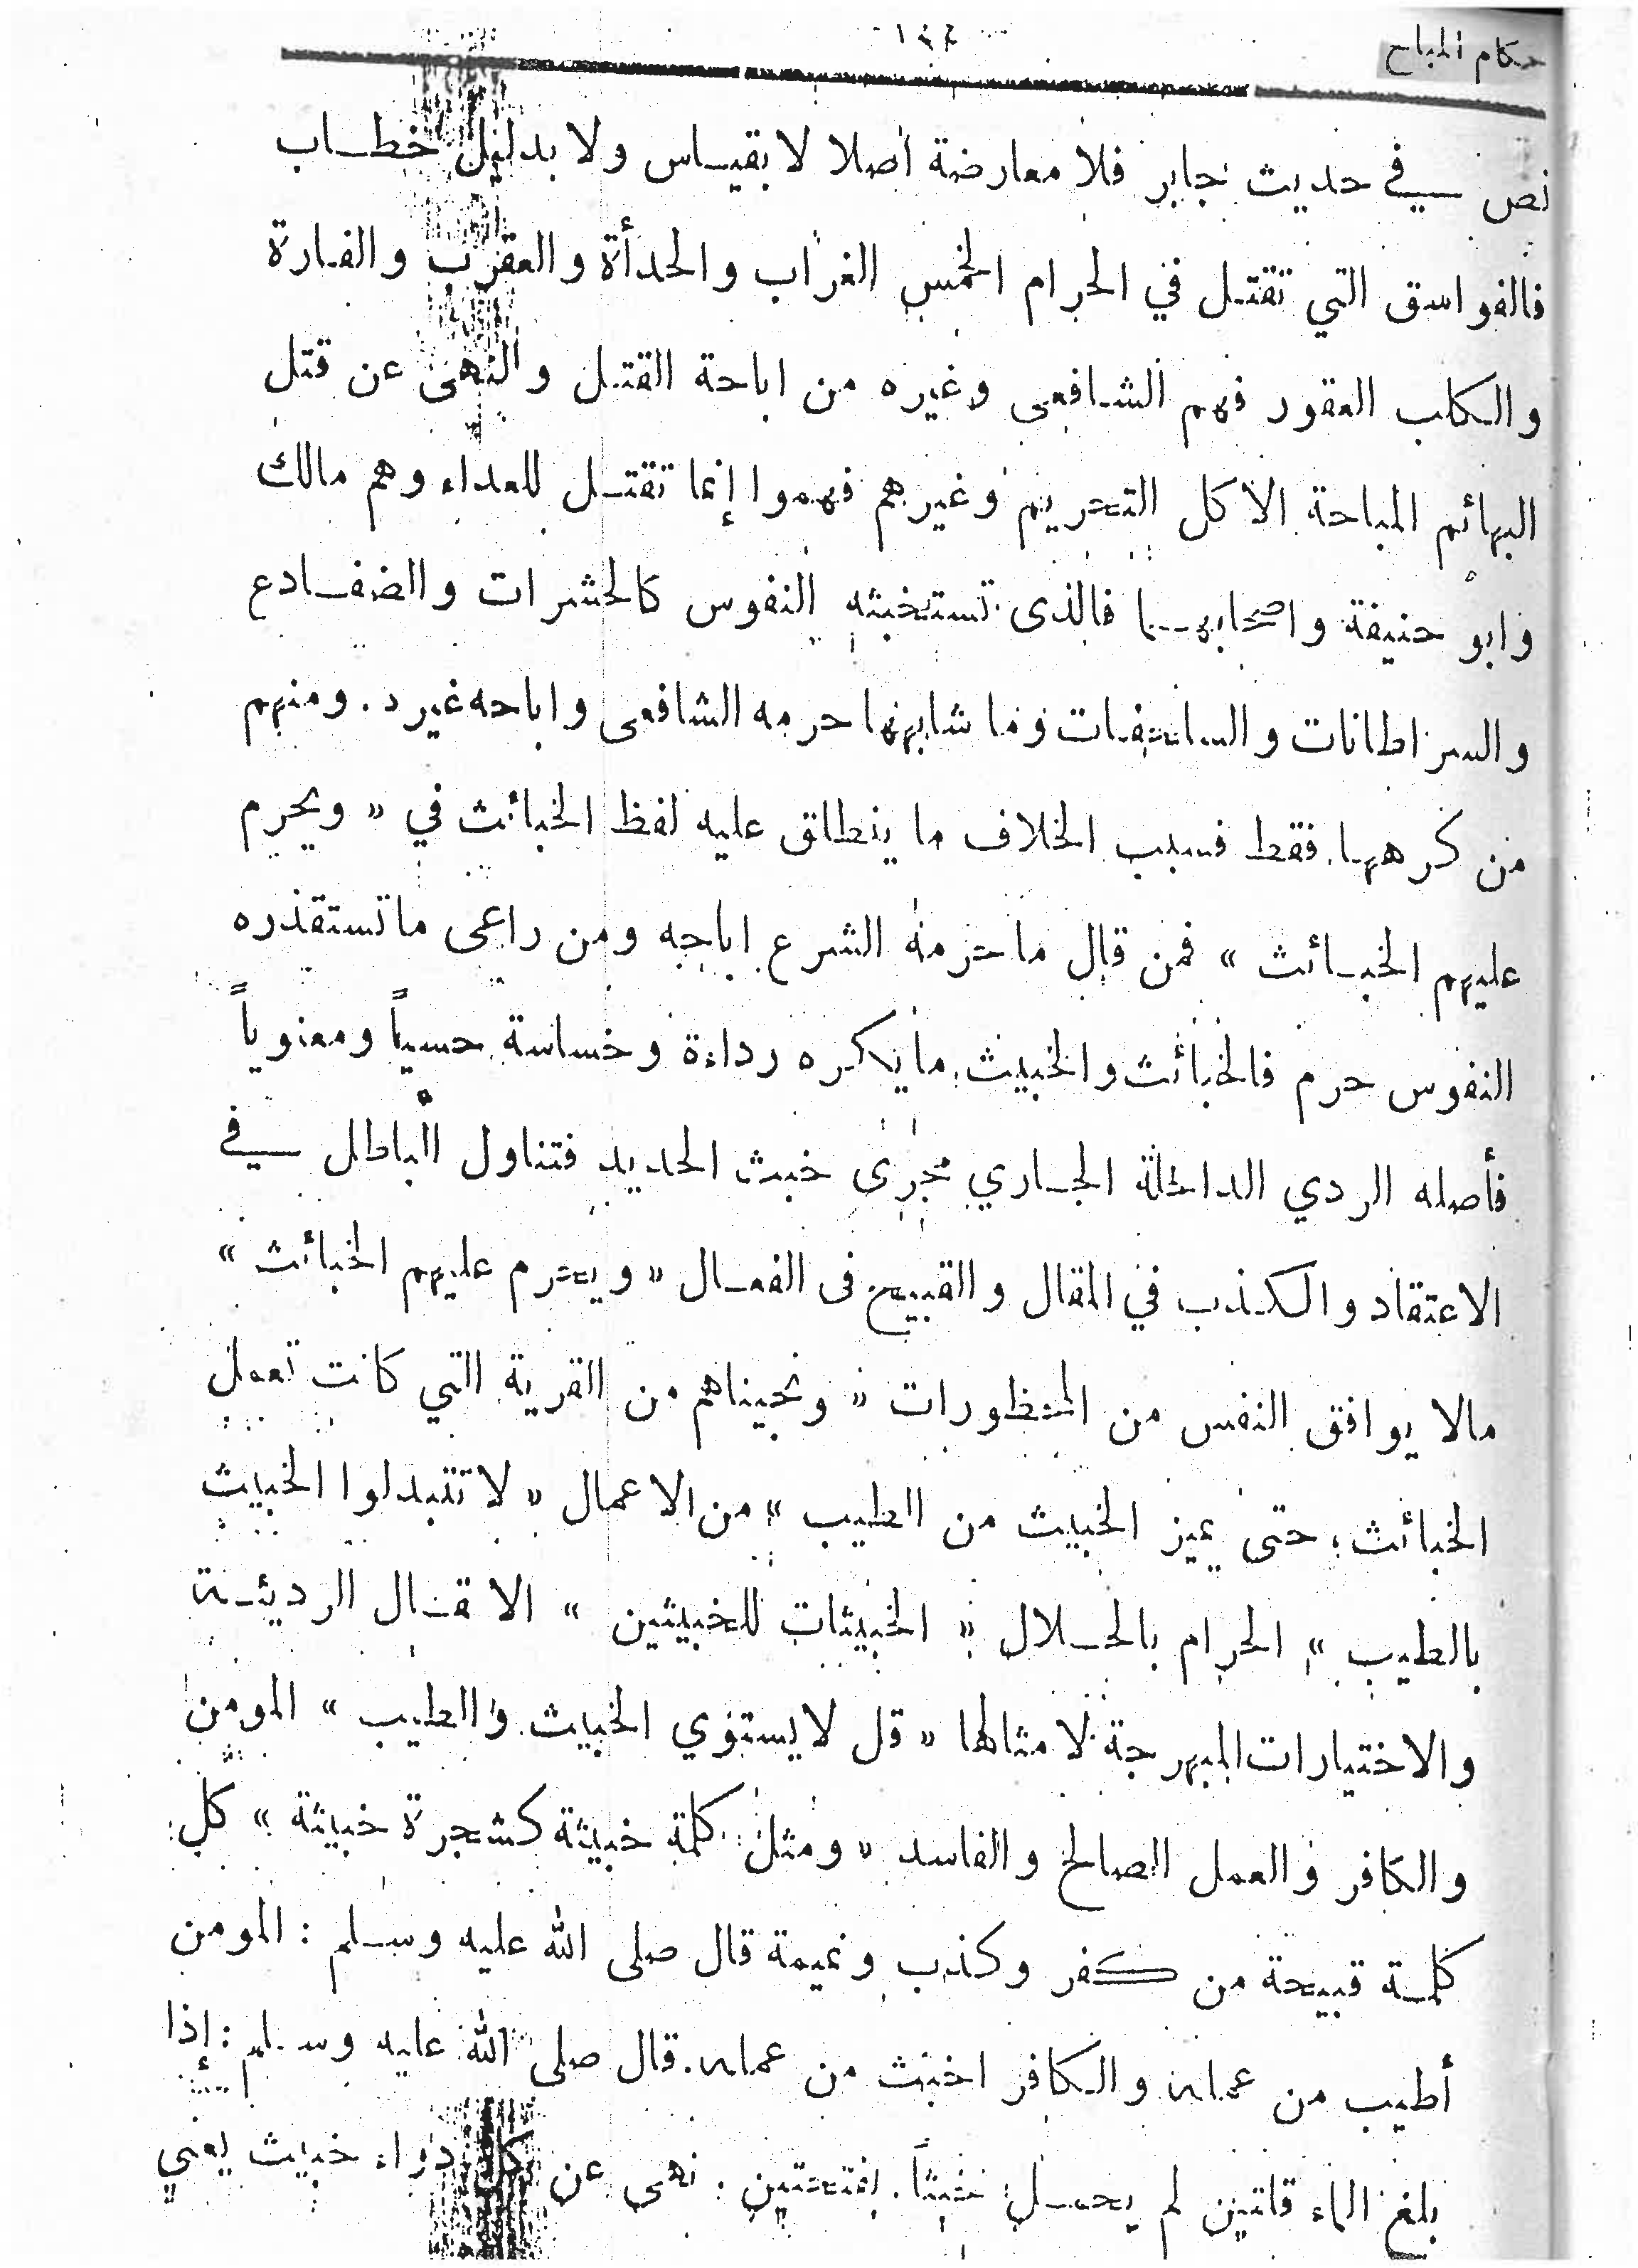 حكام المباح
نص في حديث جابر فلا معارضة أصلا لا بقياس ولا بدليل خطاب
فالفواسق التي تقتل في الحرام الخمس الغراب والحدأة والعقرب والفارة
والكلب العقور فهم الشافعى وغيره من اباحة القتل والنهى عن قتل
البهائم المباحة الاكل التحريم وغيرهم فهموا إنما تقتل للعداء وهم مالك
وابو حنيفة واصحابهما فالذى تستخبثه النفوس كالحشرات والضفادع
والسراطانات والسلحفات وما شابهها حرمه الشافعى واباحه غيره . ومنهم
من كرهها فقط فسبب الخلاف ما ينطلق عليه لفظ الخبائث في « ويحرم
عليهم الخبائث » فمن قال ما حرمه الشرع اباحه ومن راعى ما تستقذره
النفوس حرم فالخبائث والخبيث ما يكره رداءة وخساسة حسياً ومعنوياً
فأصله الردي الداخلة الجاري مجرى خبث الحديد فتناول الباطل في
الاعتقاد والكذب في المقال والقبيح فى الفعال « ويحرم عليهم الخبائث »
مالا يوافق النفس من المحظورات « ونجيناهم من القرية التي كانت تعمل
الخبائث ، حتى يميز الخبيث من الطيب » من الاعمال « لا تتبدلوا الخبيث
بالطيب » الحرام بالحلال « الخبيثات للخبيثين » الا قال الرديئة
والاختيارات المبهرجة لا مثالها « قل لا يستوي الخبيث والطيب » المومن
والكافر والعمل الصالح والفاسد « ومثل كلمة خبيثة كشجرة خبيثة » كل
كلمة قبيحة من كفر وكذب ونميمة قال صلى الله عليه وسلم : المومن
أطيب من عمله والكافر اخبث من عمله . قال صلى الله عليه وسلم : إذا
بلغ الماء قلتين لم يحمل خبثاً . بفتحتين . نهى عن كل دواء خبيث يعني